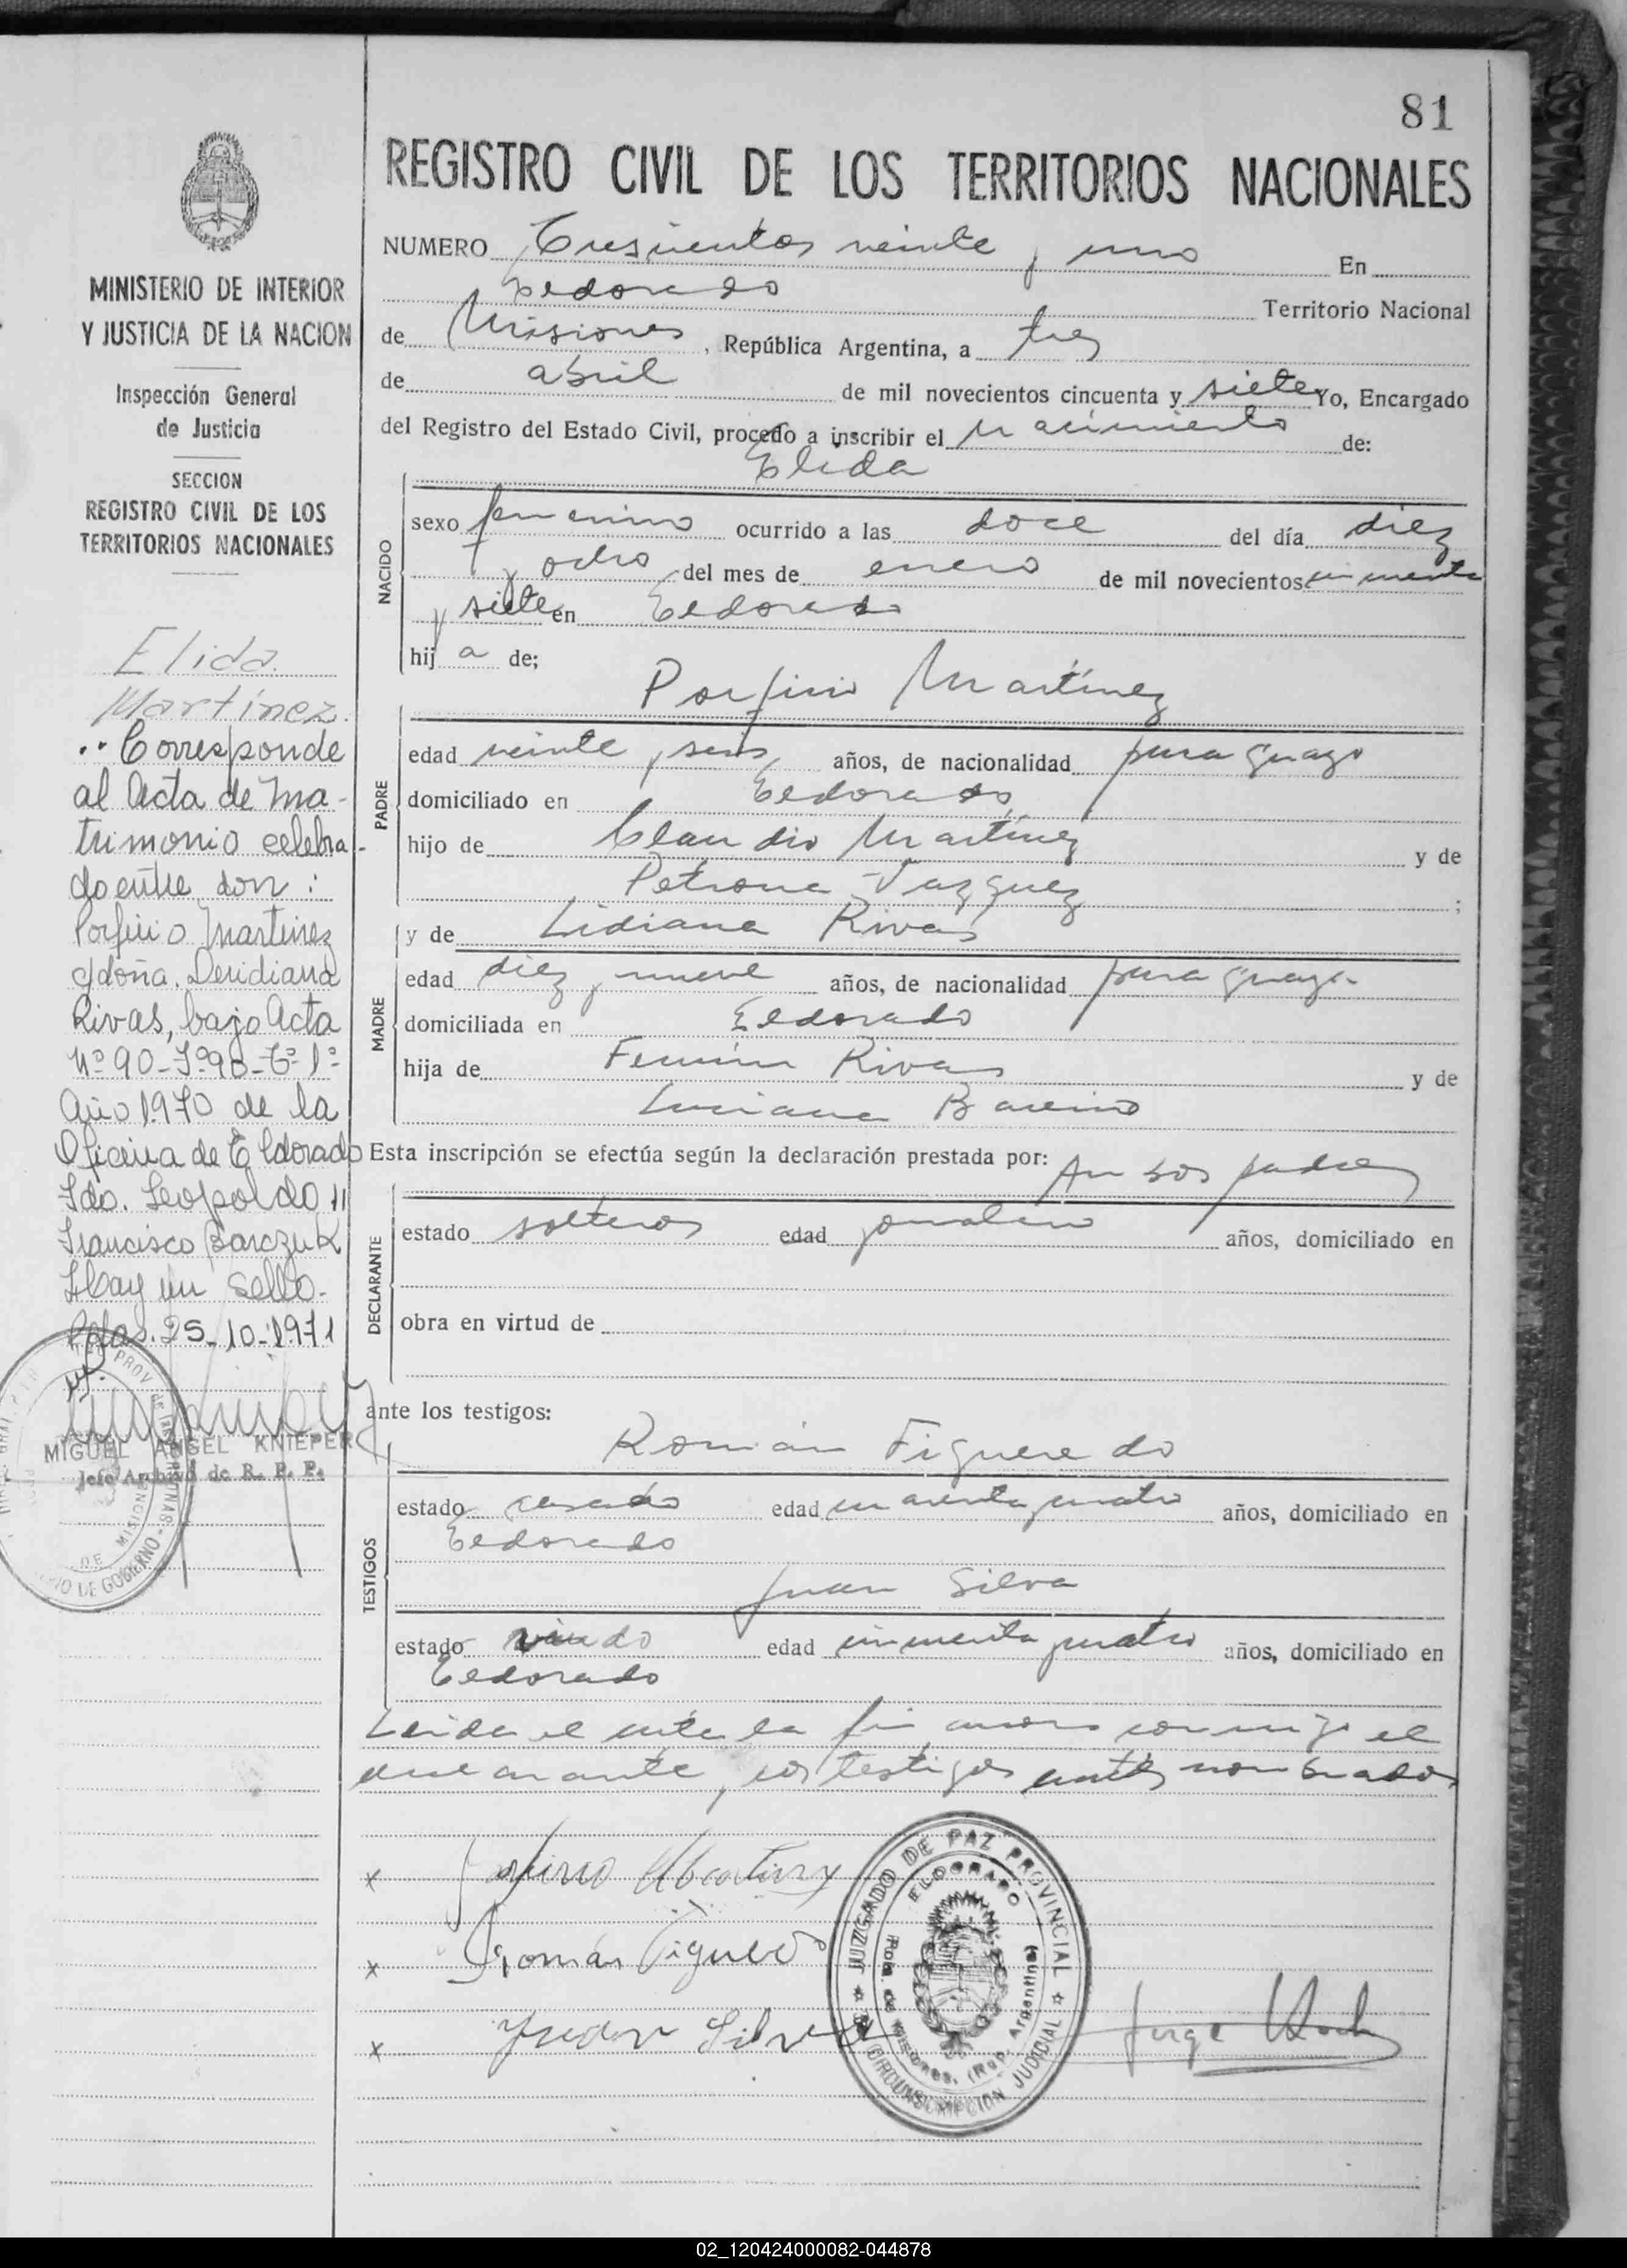 81
REGISTRO CIVIL DE LOS TERRITORIOS NACIONALES
MINISTERIO DE INTERIOR
Y JUSTICIA DE LA NACION
Inspección General
de Justicia
SECCION
REGISTRO CIVIL DE LOS
TERRITORIOS NACIONALES
Elida
Martínez.
Corresponde
al Acta de Ma-
trimonio celebra-
do entre don:
Porfirio Martinez
y doña. Deridiana
Rivas, bajo Acta
Nº 90-Fº90-Tº 1º-
Año 1.970 de la
Oficina de Eldorado
Fdo. Leopoldo
Francisco Barczuk
Hay un Sello.
Pdas. 25-10-1971
MIGUEL ANGEL KNIEPER
Jefe Archivo de R. P. P.
NUMERO Trescientos veinte y uno En
Eldorado Territorio Nacional
de Misiones, República Argentina, a tres
de abril de mil novecientos cincuenta y siete Yo, Encargado
del Registro del Estado Civil, procedo a inscribir el nacimiento de:
NACIDO
Elida
sexo femenino ocurrido a las doce del día diez
y ocho del mes de enero de mil novecientos cincuenta
y siete en Eldorado
hija de;
PADRE
Porfirio Martínez
edad veinte y seis años, de nacionalidad paraguayo
domiciliado en Eldorado
hijo de Claudio Martínez y de
Petrona Vazquez ;
MADRE
y de Lidiana Rivas
edad diez y nueve años, de nacionalidad paraguaya
domiciliada en Eldorado
hija de Fermín Rivas y de
Luciana Bareiro
Esta inscripción se efectúa según la declaración prestada por: Ambos padres
DECLARANTE
estado solteros edad jornalero años, domiciliado en
obra en virtud de
ante los testigos:
TESTIGOS
Román Figueredo
estado casado edad cuarenta y cuatro años, domiciliado en
Eldorado
Juan Silva
estado viudo edad cincuenta y cuatro años, domiciliado en
Eldorado
Leida el acta la firmaron conmigo el
declarante y los testigos antes nombrados
x Porfirio Martinez
x Román Figueredo
x Juan Silva
Jorge
JUZGADO DE PAZ PROVINCIAL
ELDORADO
Pcia. de Misiones, (Rep. Argentina)
CIRCUNSCRIPCION JUDICIAL
02_120424000082-044878